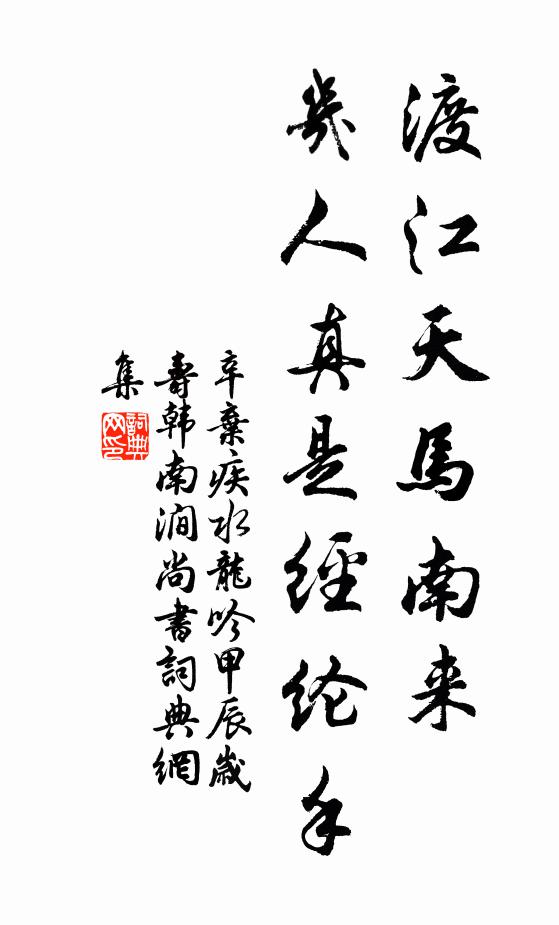 渡江天马南来
幾人真是經纶手
辛棄疾水龍吟甲辰歲
壽韩南澗尚書詞典網
集
詞典
网印